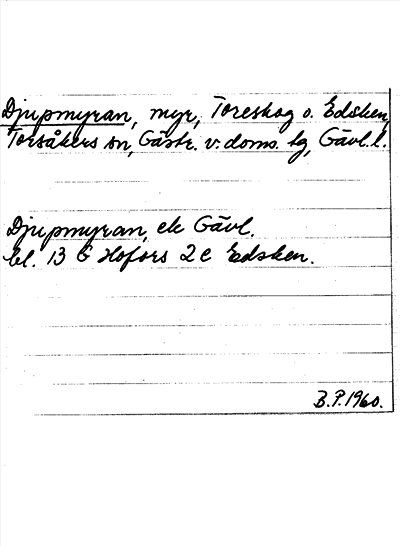 Djupmyran, myr, Toreskog o. Edsken,
Torsåkers sn, Gästr. v. doms. tg, Gävl. l.
Djupmyran, ek Gävl.
bl. 13 G Hofors 2 c Edsken.
B.P. 1960.